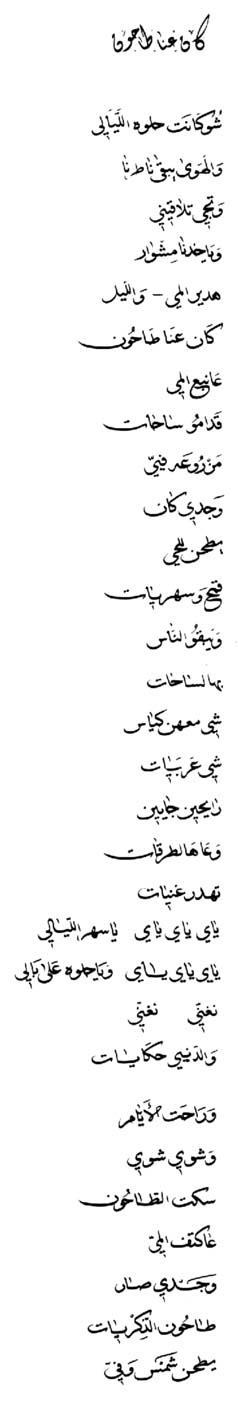 كان عنا طاحون
شو كانت حلوه الليالي
والهوى يبقى ناطرنا
وتجي تلاقيني
وياخدنا مشوار
هدير المي - والليل
كان عنا طاحون
عا نبع المي
قدامو ساحات
مزروعه فيي
وجدي كان
يطحن للحي
قمح وسهريات
ويبقو الناس
بهالساحات
شي معهن كياس
شي عربيات
رايحين جايين
وعا هالطرقات
تهدر غنيات
ياي ياي ياي ياسهر الليالي
ياي ياي ياي ويا حلوه على بالي
نغني نغني
والدنيي حكايات
وراحت الأيام
وشوي شوي
سكت الطاحون
عا كتف المي
وجدي صار
طاحون الذكريات
يطحن شمس وفي